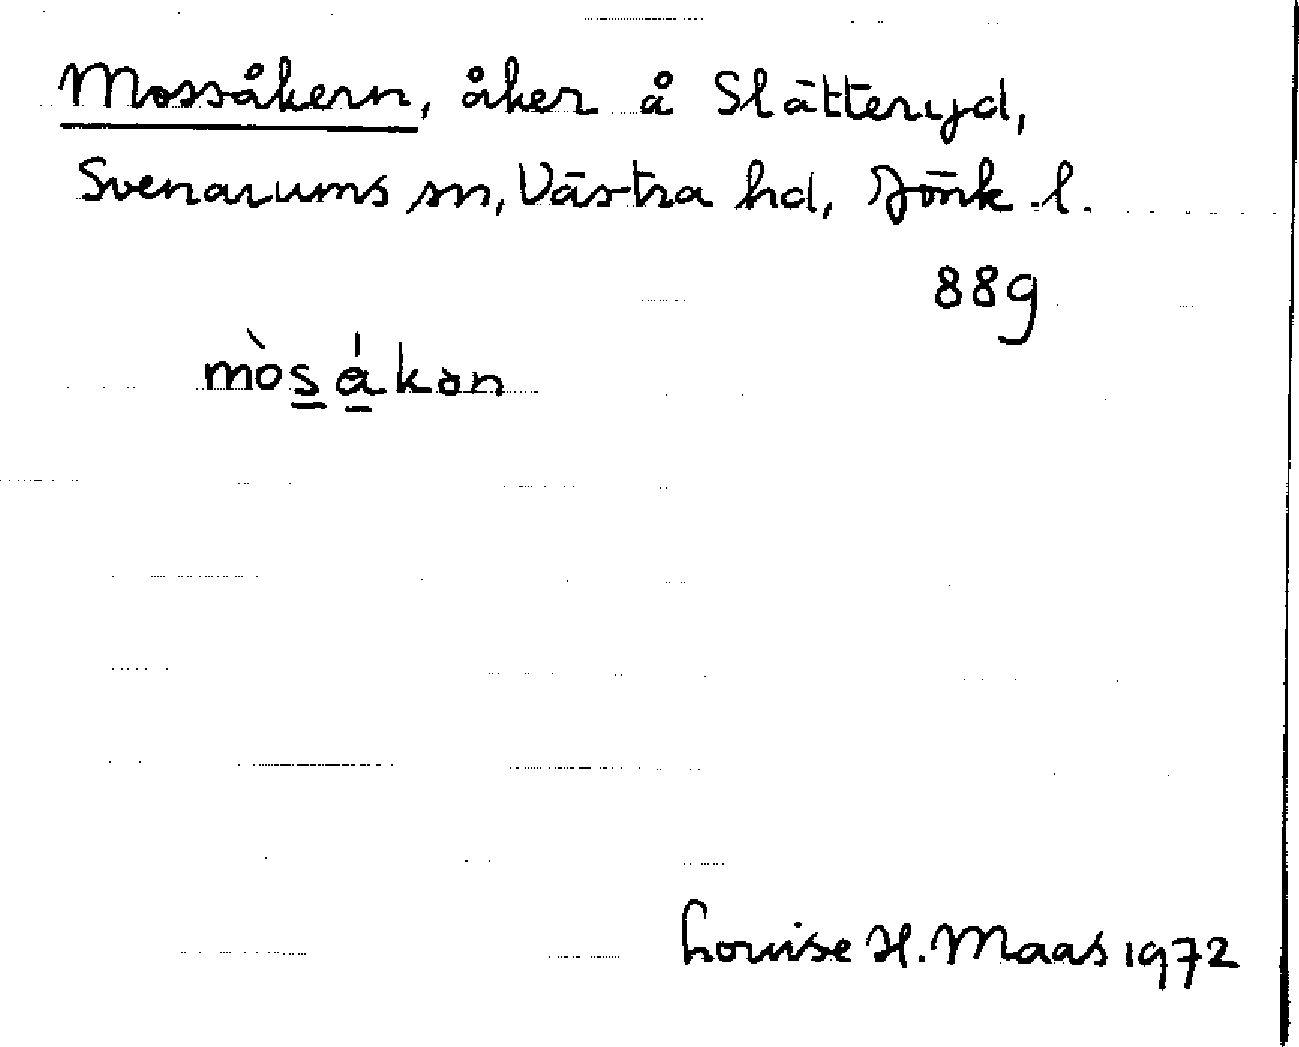 Mossåkern, åker å Slätteryd,
Svenarums sn, Västra hd, Jönk. l.
889
mòsákən
Louise H. Maas 1972